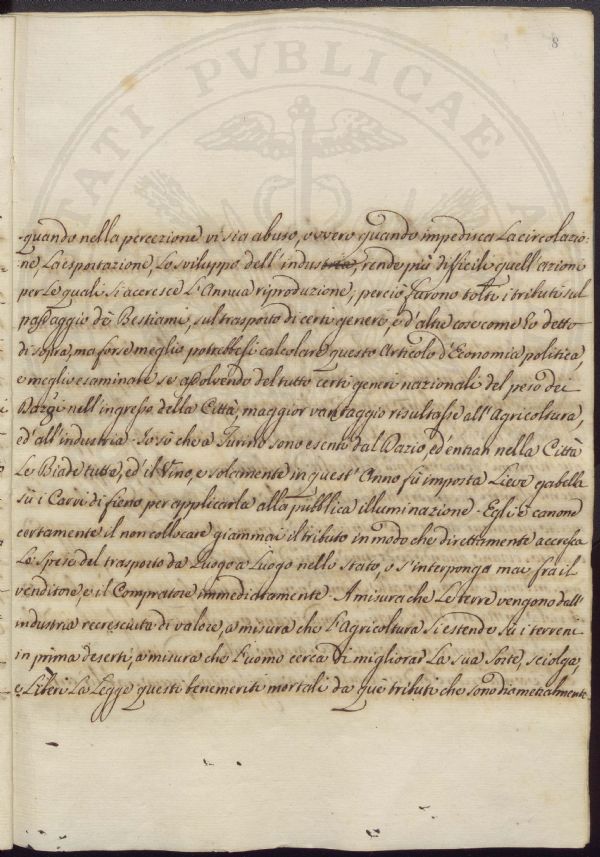 8
TATI PVBLICAE
quando nella percezione vi sia abuso, ovvero quando impedisca La circolazio:
:ne, La esportazione, Lo sviluppo dell'industria, rende più dificile quell'azioni
per Le quali si accresce L'Annua riproduzione, perciò furono tolti i tributi sul
passaggio dè Bestiami, sul trasporto di certi generi, e d'altre cose come hò detto
di sopra, ma forse meglio potrebbesi calcolare questo Articolo d'Economia politica,
e meglio esaminare se assolvendo del tutto certi generi nazionali del peso dei
Dazzi nell'ingresso della Città, maggior vantaggio risultasse all'Agricoltura,
ed'all'industria. Io sò che a Turino sono esenti dal Dazio, ed'entran nella Città
Le Biade tutte, ed'il Vino, e solamente in quest'Anno fù imposta Lieve gabella
sù i Carri di fieno per applicarla alla pubblica illuminazione. Egli è canone
certamente il non collocare giammai il tributo in modo che direttamente accresca
Le spese del trasporto da Luogo a Luogo nello stato, o s'interponga mai fra il
venditore, e il Compratore immediatamente. A misura che Le terre vengono dall'
industria recresciute di valore, a misura che L'agricoltura si estende sù i terreni
in prima deserti, a misura che L'uomo cerca di migliorar La sua Sorte, sciolga,
e Liberi La Legge questi benemeriti mortali da què tributi che sono diametralmente